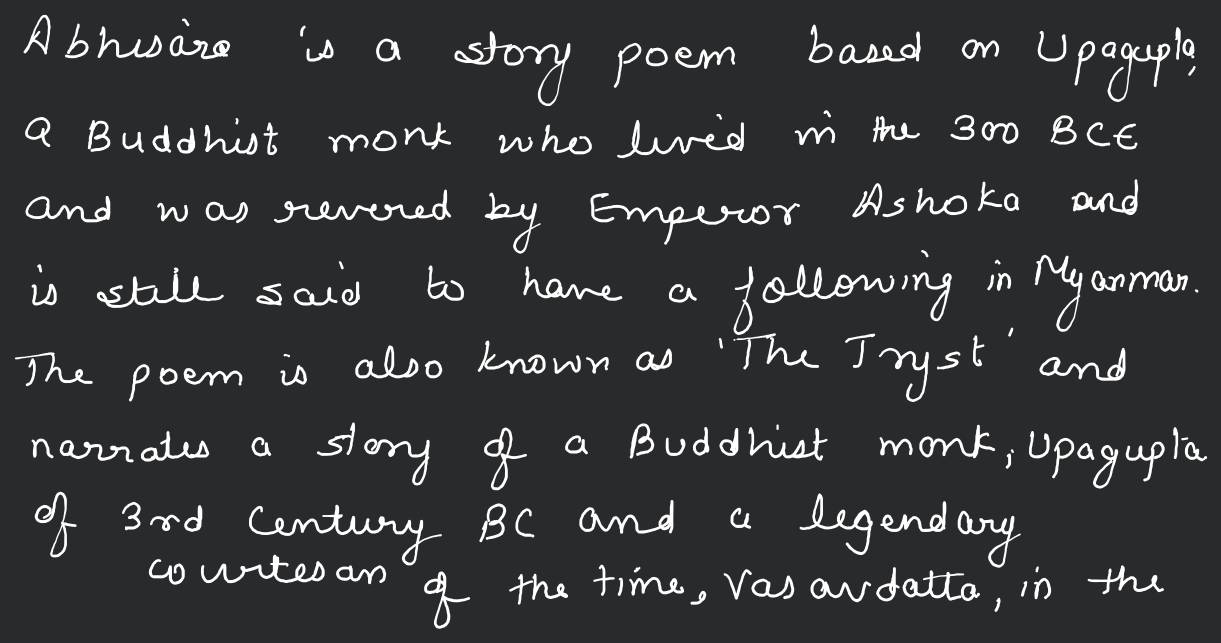 Abhisàra is a story poem based on Upagupta,
a Buddhist monk who lived in the 300 BCE
and was revered by Emperor Ashoka and
is still said to have a following in Myanmar.
The poem is also known as 'The Tryst' and
narrates a story of a Buddhist monk, Upagupta
of 3rd Century BC and a legendary
courtesan of the time, Vasavdatta, in the